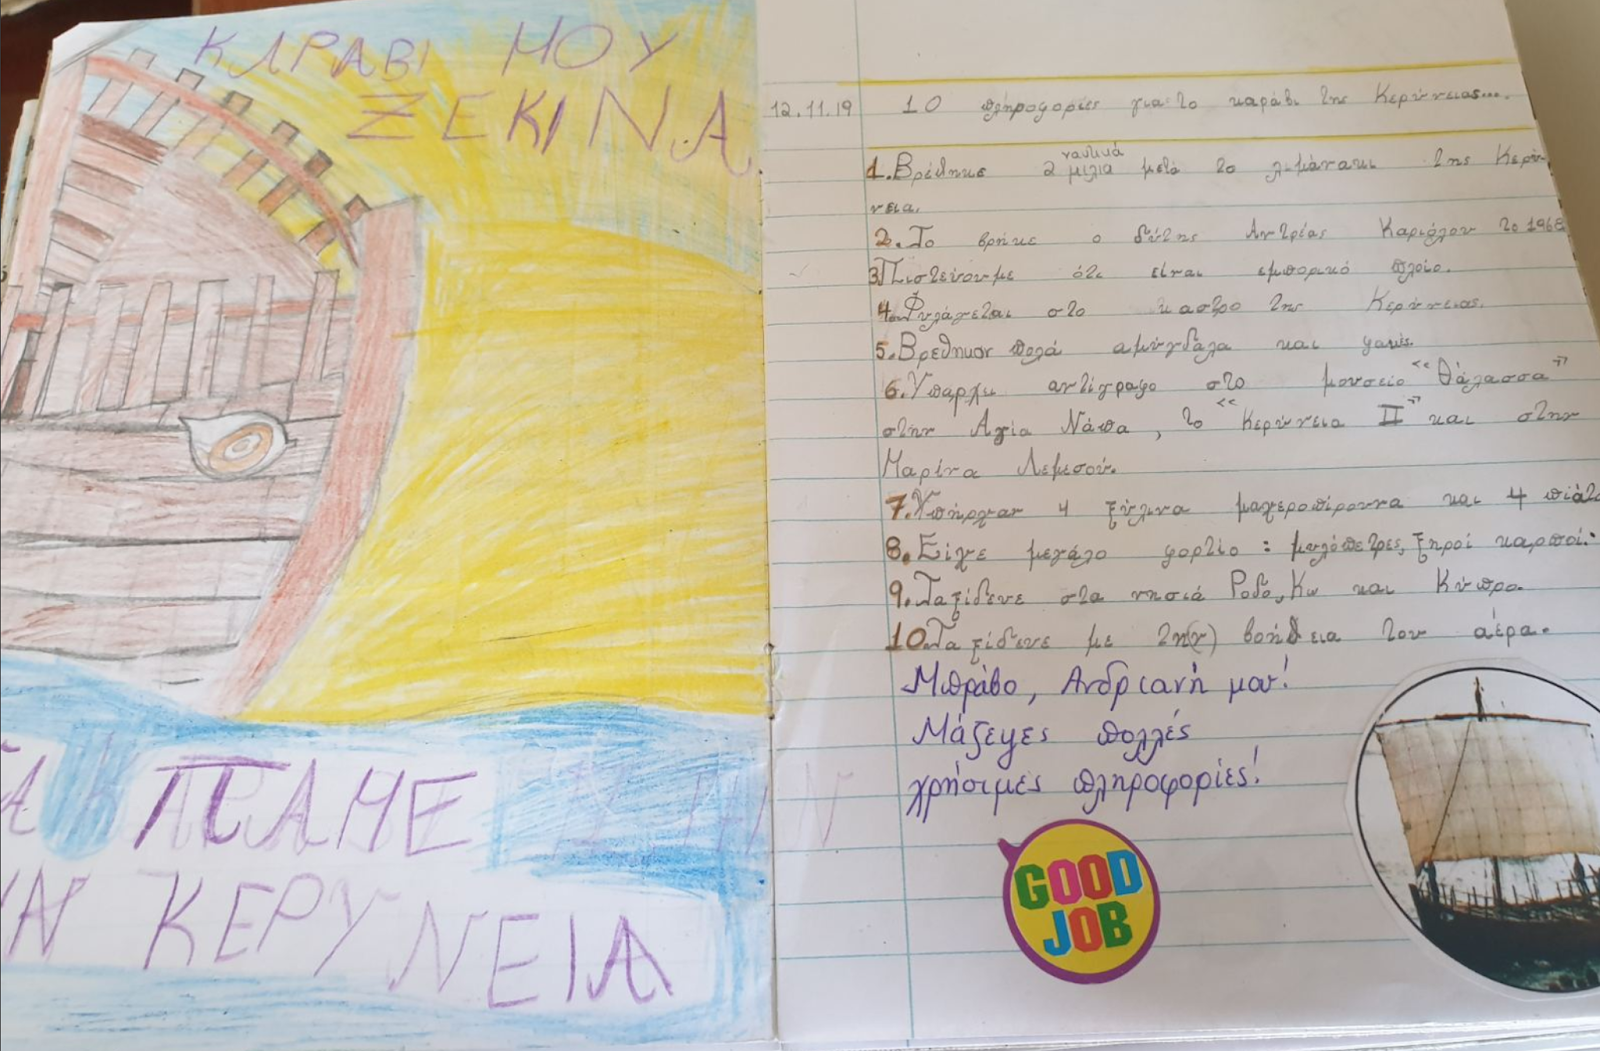 ΚΑΡΑΒΙ ΜΟΥ
ΞΕΚΙΝΑ
ΠΑΜΕ
ΚΕΡΥΝΕΙΑ
12.11.19 10 πληροφορίες για το καράβι της Κερύνειας...
1. Βρέθηκε 2 ναυτικά μίλια μετά το λιμάνακι της Κερύ
νεια.
2. Το βρήκε ο δύτης Αντρέας Καριόλου το 1968
3. Πιστεύουμε ότι είναι εμπορικό πλοίο.
4. Φυλάγεται στο καστρο της Κερύνειας.
5. Βρεθηκαν πολά αμύγδαλα και φακές.
6. Υπαρχει αντίγραφο στο μουσείο "Θάλασσα"
στην Αγία Νάπα, το "Κερύνεια II" και στην
Μαρίνα Λεμεσού.
7. Υπήρχαν 4 ξύλινα μαχεροπίρουνα και 4 πιάτα
8. Είχε μεγάλο φορτίο: μυλόπετρες, ξηροί καρποί.
9. Ταξίδευε στα νησιά Ροδό, Κω και Κύπρο.
10. Ταξίδευε με τη(ν) βοήθεια του αέρα.
Μπράβο, Ανδριανή μου!
Μάζεψες πολλές
χρήσιμες πληροφορίες!
GOOD
JOB